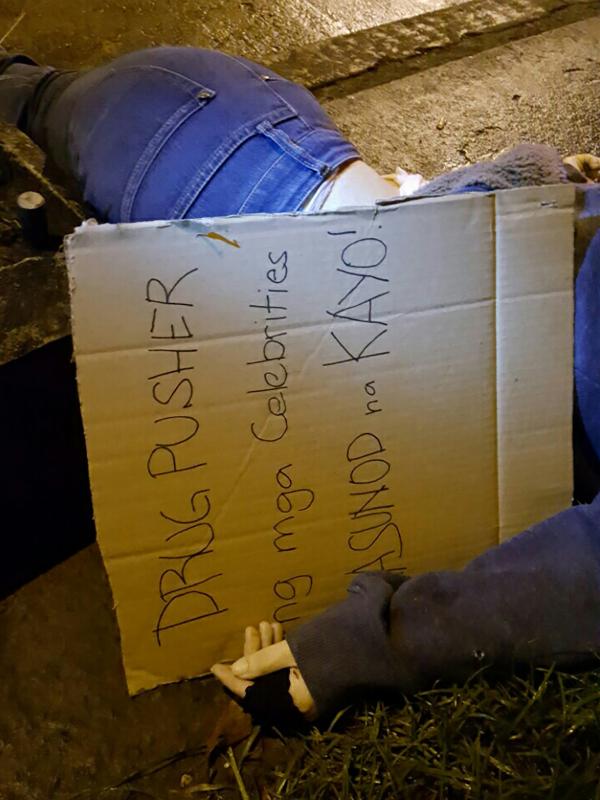 DRUG PUSHER
ng mga Celebrities
ASUNOD na KAYO!